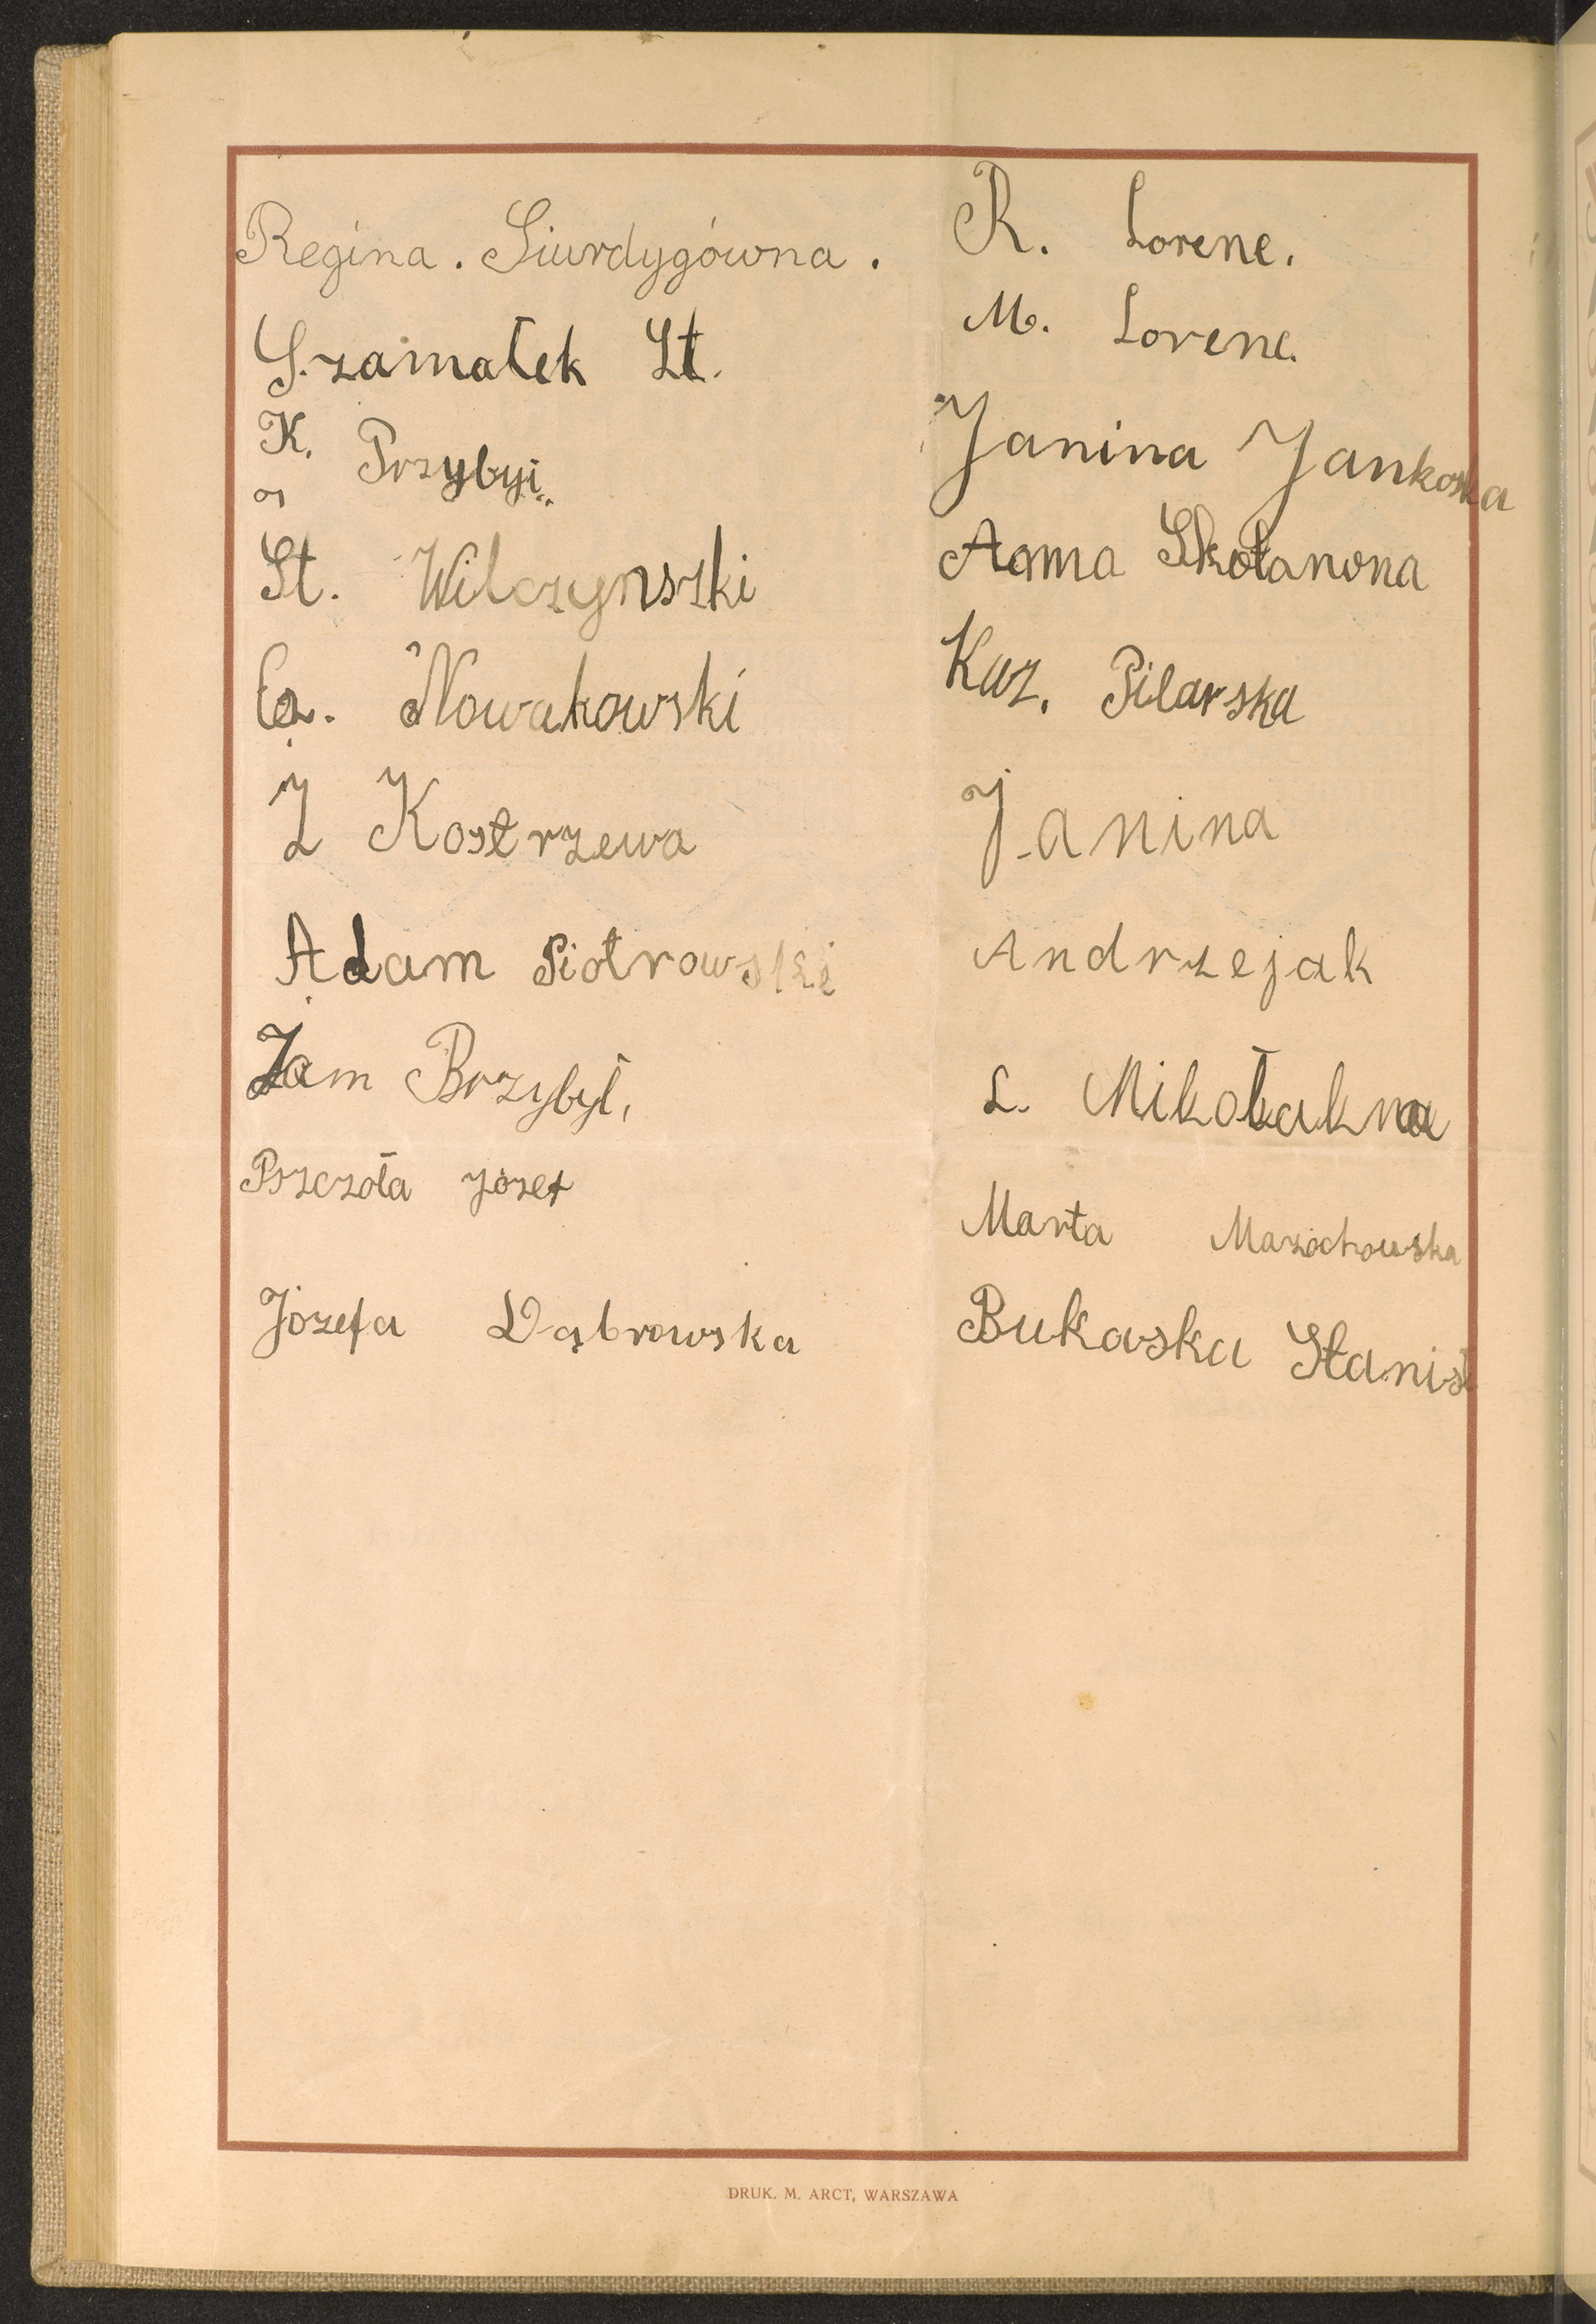 Regina. Siurdygówna.
Szamałek St.
K. Przybył
St. Wilczynszki
Nowakowski
Kostrzewa
Adam Piotrowski
Jam Brzybył,
Pszczoła Józef
Józefa Dąbrowska
R. Lorenc.
M. Lorenc.
Janina Jankoska
Anna Skołanona
Kaz. Pilarska
Janina
Andrzejak
L. Mikołakna
Marta
Bukaska Stanisł
DRUK. M. ARCT, WARSZAWA